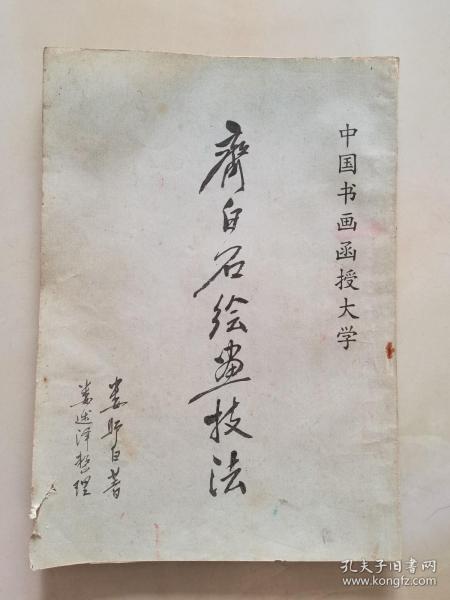 中国书画函授大学
齊白石绘画技法
娄师白著
娄述泽整理
孔夫子旧书网
www.kongfz.com